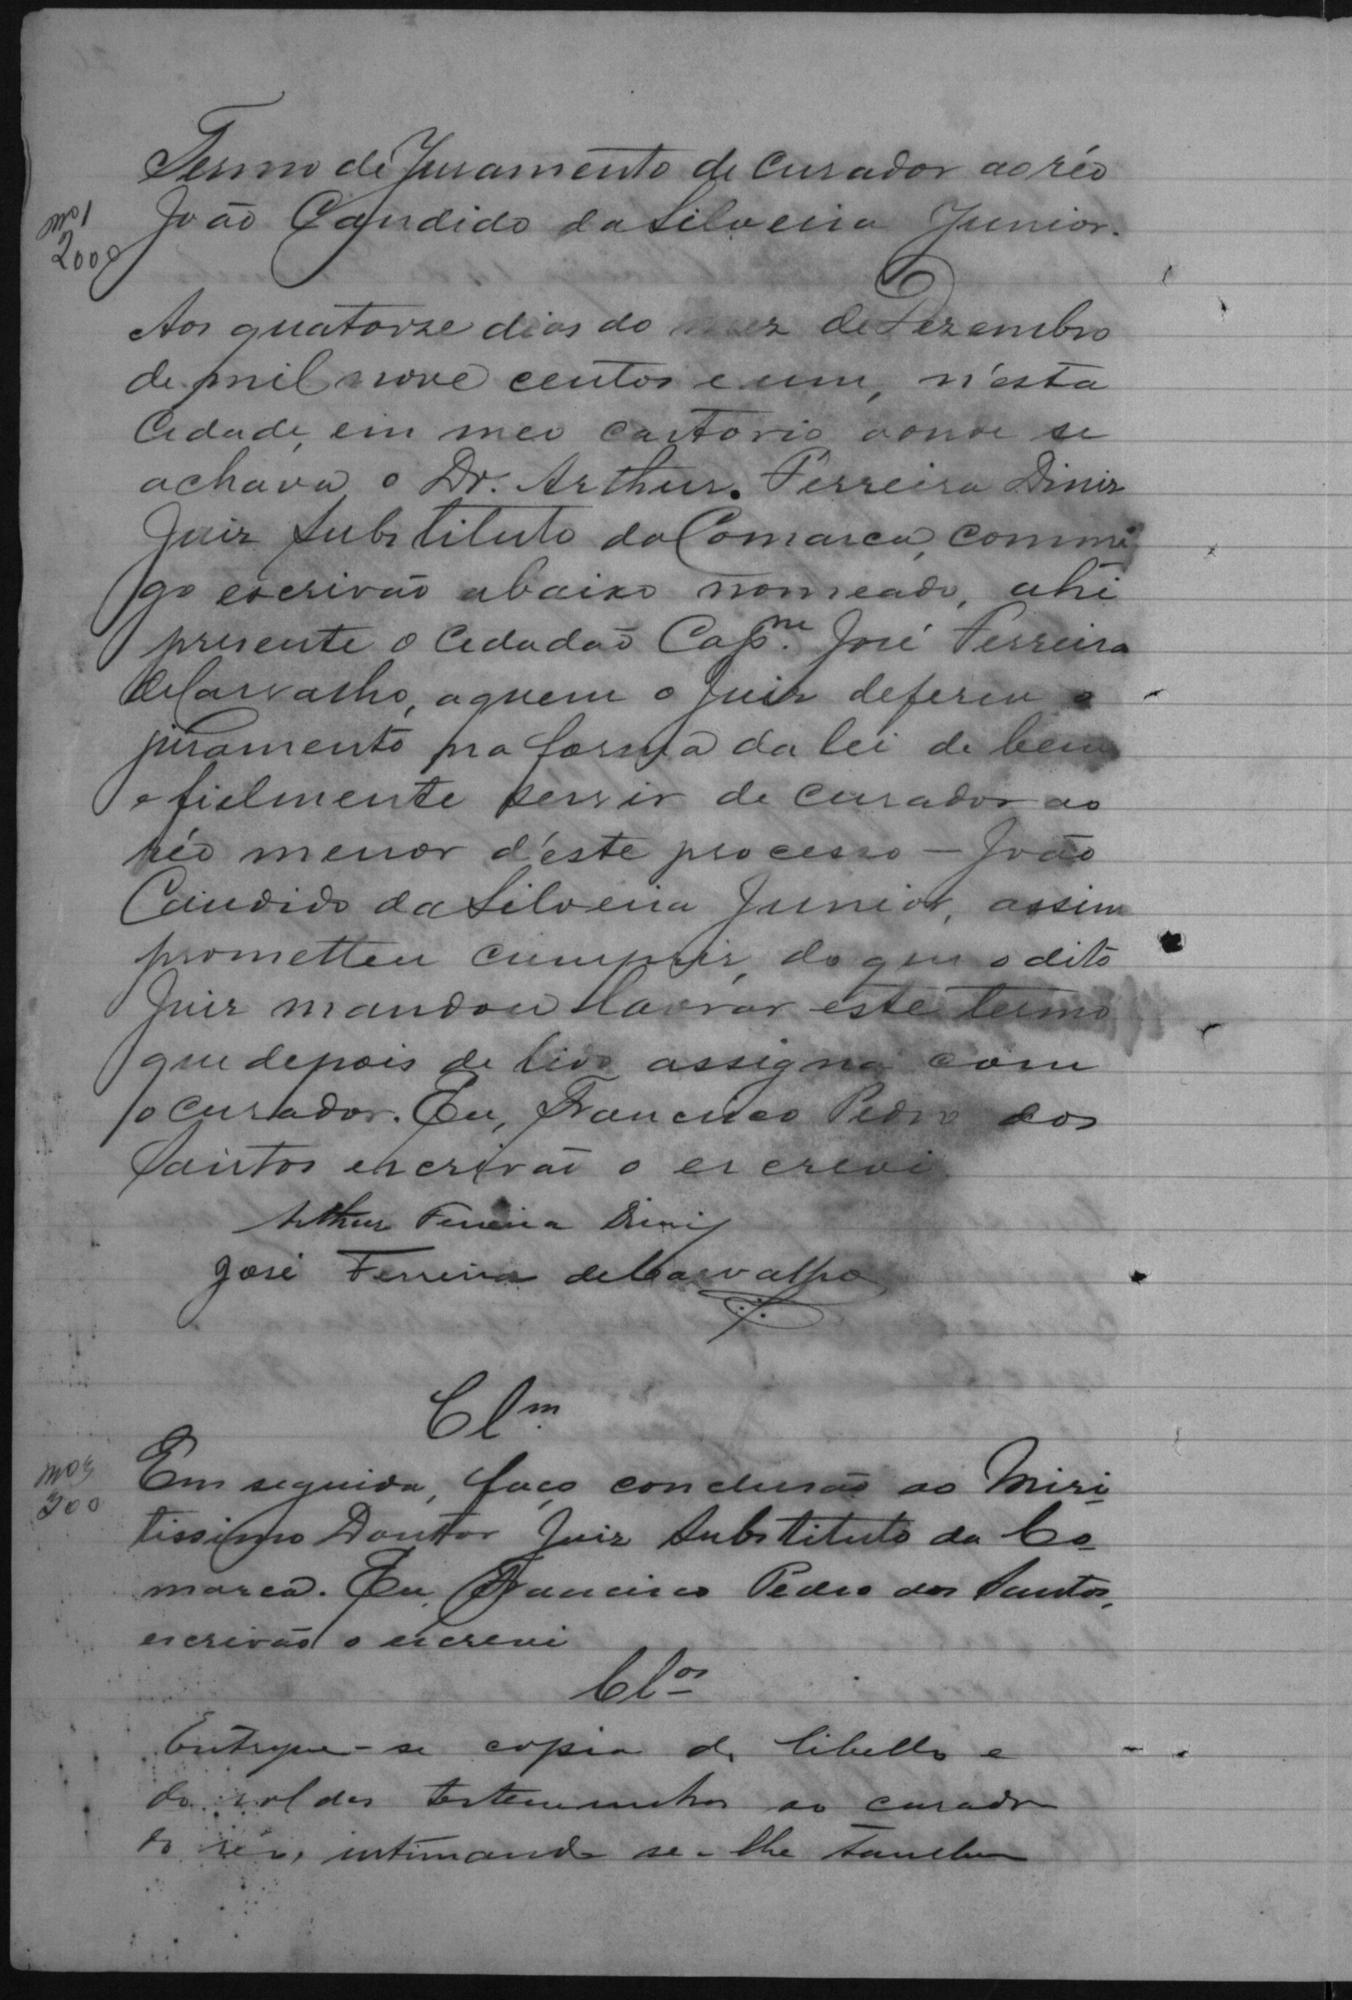 Termo de Juramento de Curador ao réo
João Candido da Silveira Junior.
2000
Aos quatorze dias do mez de Dezembro
de mil nove centos e um, n'esta
Cidade, em meo cartorio aonde se
achava o Dr. Arthur. Ferreira Diniz
Juiz Substituto da Comarca, commi
go escrivão abaixo nomeado, ahi
presente o Cidadão Cap.^m José Ferreira
de Carvalho, aquem o Juiz deferiu o
juramento na forma da lei de bem
e fielmente servir de curador ao
réo menor d'este processo – João
Candido da Silveira Junior, assim
prometteu cumprir, do que o dito
Juiz mandou lavrar este termo
que depois de lido assigna com
o curador. Eu, Francisco Pedro dos
Santos escrivão o escrevi
Arthur Ferreira Diniz
José Ferreira de Carvalho
Cl^m
Em seguida, faço conclusão ao Miri-
tissimo Doutor Juiz Substituto da Co-
marca. Eu, Francisco Pedro dos Santos,
escrivão o escrevi
200
Cl^os
Entregue-se copia do libello e
do rol das testemunhas ao curador
do réo, intimando se-lhe tambem